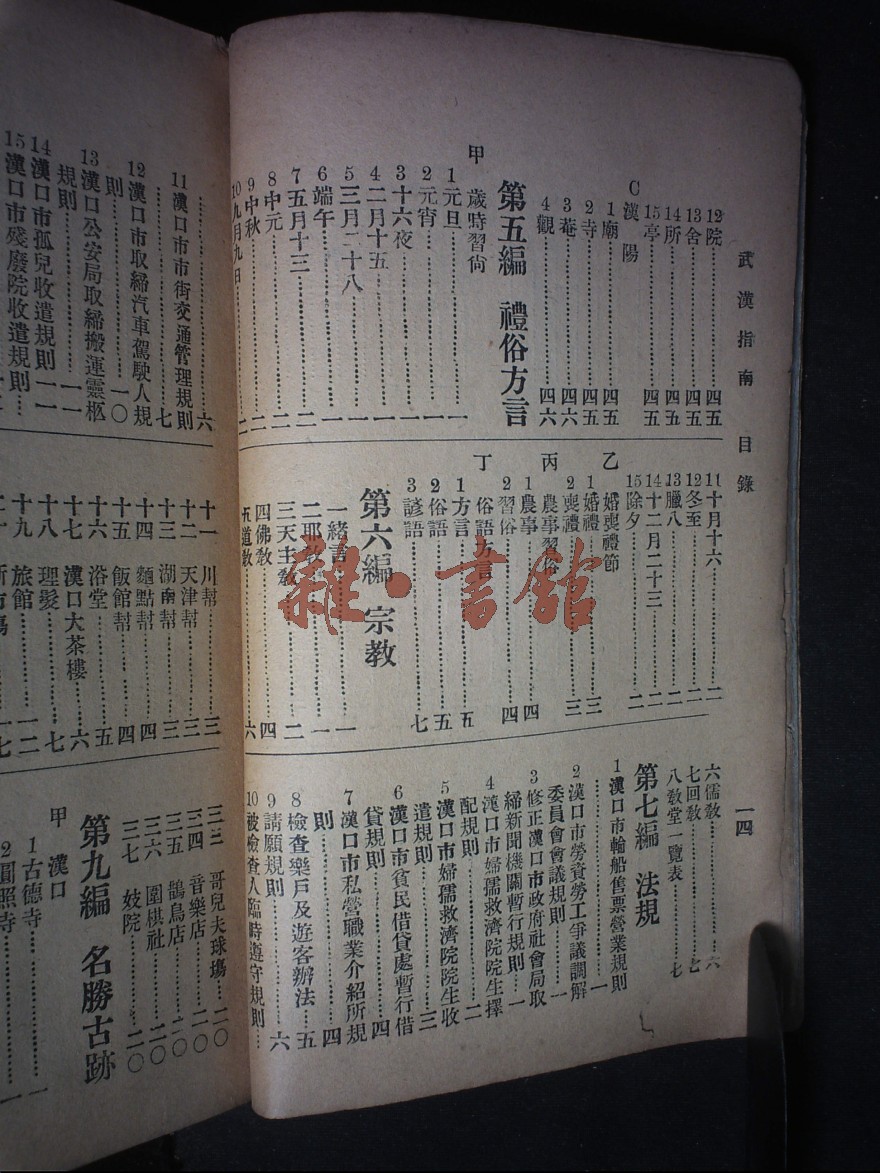 武漢指南 目錄
一四
12院……四五
13舍……四五
14所……四五
15亭……四五
C漢陽
1廟……四五
2寺……四五
3菴……四六
4觀……四六
第五編 禮俗方言
甲 歲時習尙
1元旦……一
2元宵……一
3十六夜……一
4二月十五……一
5三月二十八……一
6端午……一
7五月十三……二
8中元……二
9中秋……二
10九月九日……二
11十月十六……二
12冬至……二
13臘八……二
14十二月二十三……二
15除夕……二
乙 婚喪禮節
1婚禮……三
2喪禮……三
丙 農事習俗
1農事……四
2習俗……四
丁 俗語方言
1方言……五
2俗語……五
3諺語……七
第六編 宗教
一緒言……一
二耶教……一
三天主教……二
四佛教……四
五道教……六
六儒教……六
七回教……七
八教堂一覽表……七
第七編 法規
1漢口市輪船售票營業規則
……一
2漢口市勞資勞工爭議調解
委員會會議規則……一
3修正漢口市政府社會局取
締新聞機關暫行規則……一
4漢口市婦孺救濟院院生擇
配規則……二
5漢口市婦孺救濟院院生收
遣規則……三
6漢口市貧民借貸處暫行借
貸規則……四
7漢口市私營職業介紹所規
則……四
8檢查樂戶及遊客辦法……五
9請願規則……六
10被檢查人臨時遵守規則……
……六
11漢口市市街交通管理規則
……七
12漢口市取締汽車駕駛人規
則……一〇
13漢口公安局取締搬運靈柩
規則……一一
14漢口市孤兒收遣規則……一一
15漢口市殘廢院收遣規則……
十一 川幫……三
十二 天津幫……三
十三 湖南幫……三
十四 麵點幫……四
十五 飯館幫……四
十六 浴堂……五
十七 漢口大茶樓……六
十八 理髮……七
十九 旅館……一二
三三 哥兒夫球場……二〇
三四 音樂店……二〇
三五 鵲鳥店……二〇
三六 圍棋社……二〇
三七 妓院……二〇
第九編 名勝古跡
甲 漢口
1古德寺……一
2圓照寺……一
雜·書館